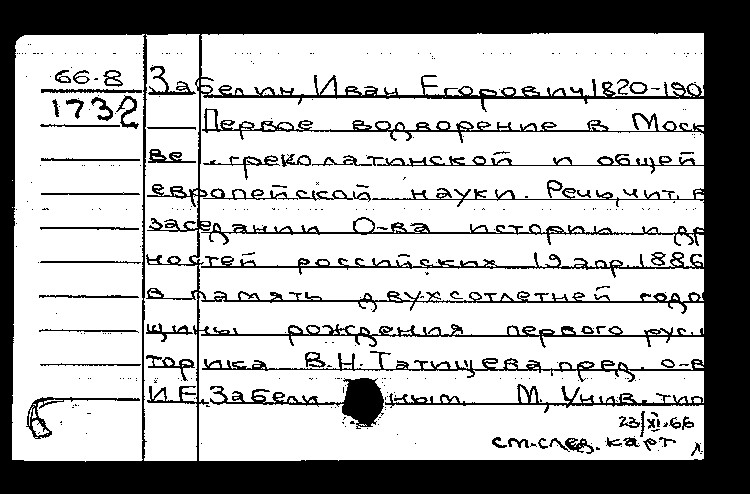 66-8
1732
Забелин, Иван Егорович, 1820-190
Первое водворение в Моск
ве греколатинской и общей
европейской науки. Речь, чит. в
заседании О-ва истории и др
ностей российских 19 апр. 1886
в память двухсотлетней годов
щины рождения первого рус.
торика В.Н. Татищева, пред. о-в
И.Е. Забели ным. М, Унив. тип
23/XI-66
см. след. карт